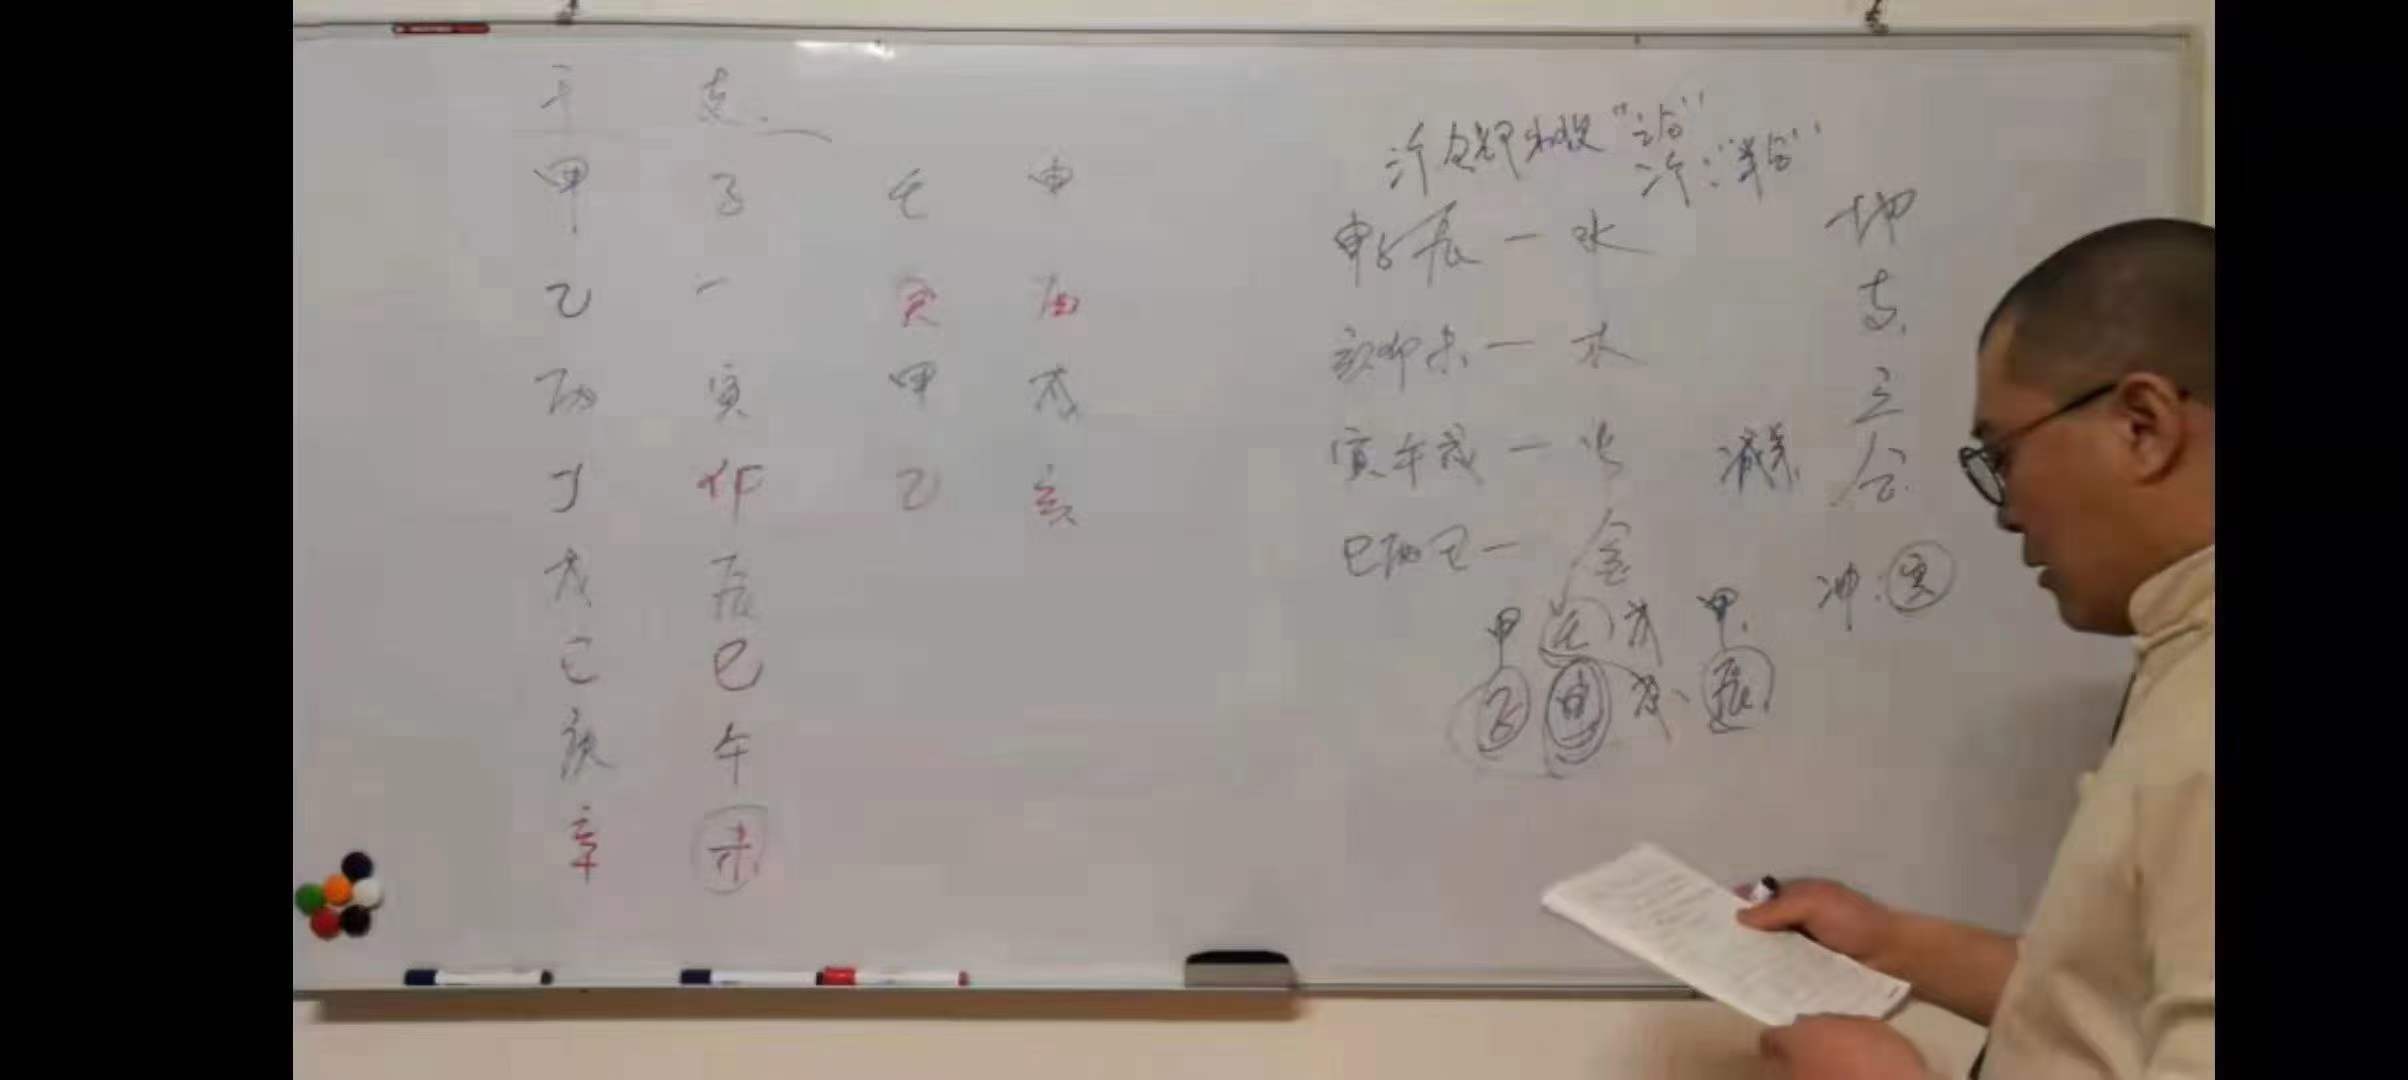 干 支
甲 子 壬 申
乙 一 癸 酉
丙 寅 甲 戌
丁 卯 乙 亥
戊 辰
己 巳
庚 午
辛 未
"三合"
"半合"
申子辰一水
亥卯未一木
寅午戌一火
巳酉丑一金
地支三合
甲 壬 戊 甲
子 申 戌 辰
冲:寅